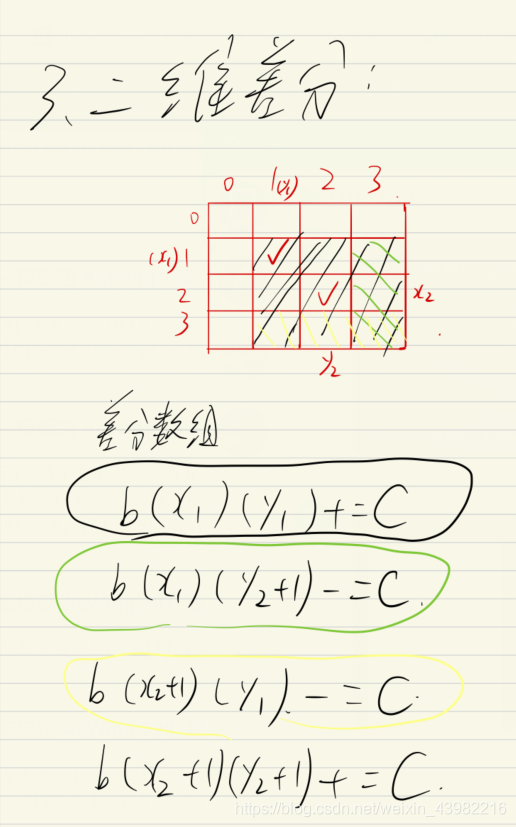 3、二维差分:
0 1(y₁) 2 3
0
(x₁) 1
2 x₂
3
y₂
差分数组
b(x₁)(y₁)+=C
b(x₁)(y₂+1)-=C.
b(x₂+1)(y₁).-=C.
b(x₂+1)(y₂+1)+=C.
https://blog.csdn.net/weixin_43982216